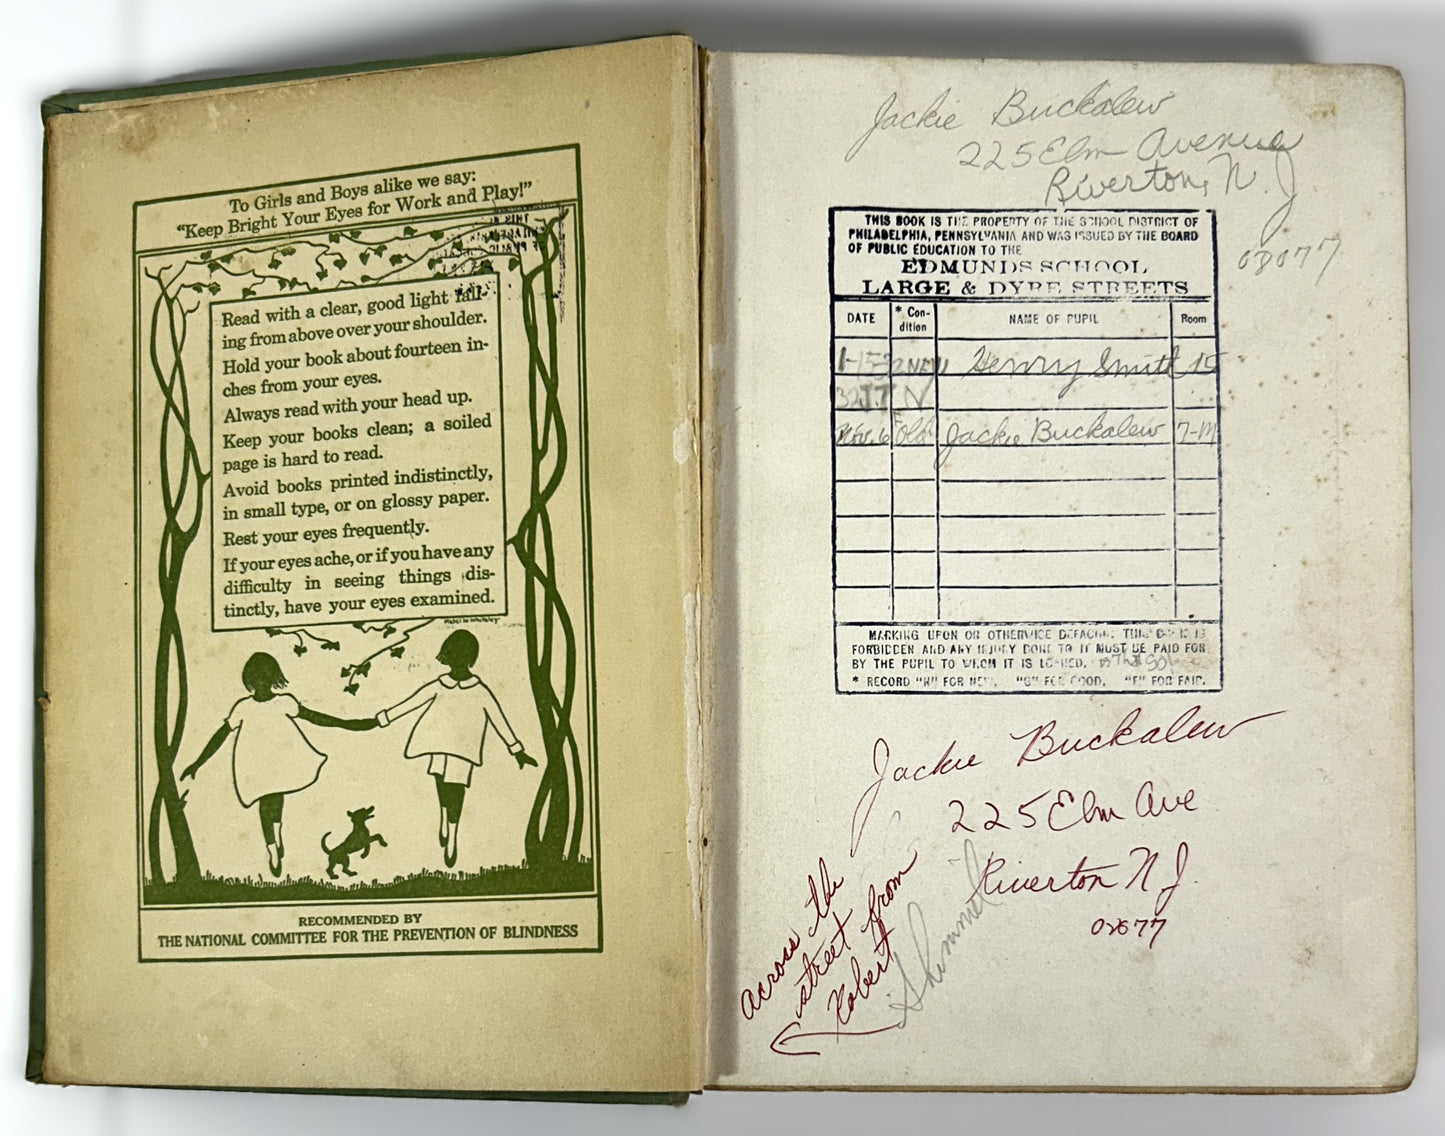 To Girls and Boys alike we say:
"Keep Bright Your Eyes for Work and Play!"
Read with a clear, good light fall-
ing from above over your shoulder.
Hold your book about fourteen in-
ches from your eyes.
Always read with your head up.
Keep your books clean; a soiled
page is hard to read.
Avoid books printed indistinctly,
in small type, or on glossy paper.
Rest your eyes frequently.
If your eyes ache, or if you have any
difficulty in seeing things dis-
tinctly, have your eyes examined.
Mabel W. Whiteley
RECOMMENDED BY
THE NATIONAL COMMITTEE FOR THE PREVENTION OF BLINDNESS
Jackie Buckalew
225 Elm Avenue
Riverton, N. J
08077
THIS BOOK IS THE PROPERTY OF THE SCHOOL DISTRICT OF
PHILADELPHIA, PENNSYLVANIA AND WAS ISSUED BY THE BOARD
OF PUBLIC EDUCATION TO THE
EDMUNDS SCHOOL
LARGE & DYRE STREETS
DATE * Con-dition NAME OF PUPIL Room
1-15-32 NEW Henry Smith 15
Nov. 6 Old Jackie Buckalew 7-M
MARKING UPON OR OTHERWISE DEFACING THIS BOOK IS
FORBIDDEN AND ANY INJURY DONE TO IT MUST BE PAID FOR
BY THE PUPIL TO WHOM IT IS LOANED.
* RECORD "N" FOR NEW, "G" FOR GOOD, "F" FOR FAIR.
Jackie Buckalew
225 Elm Ave
Riverton N J
08077
across the
street from
Robert
Shimmel